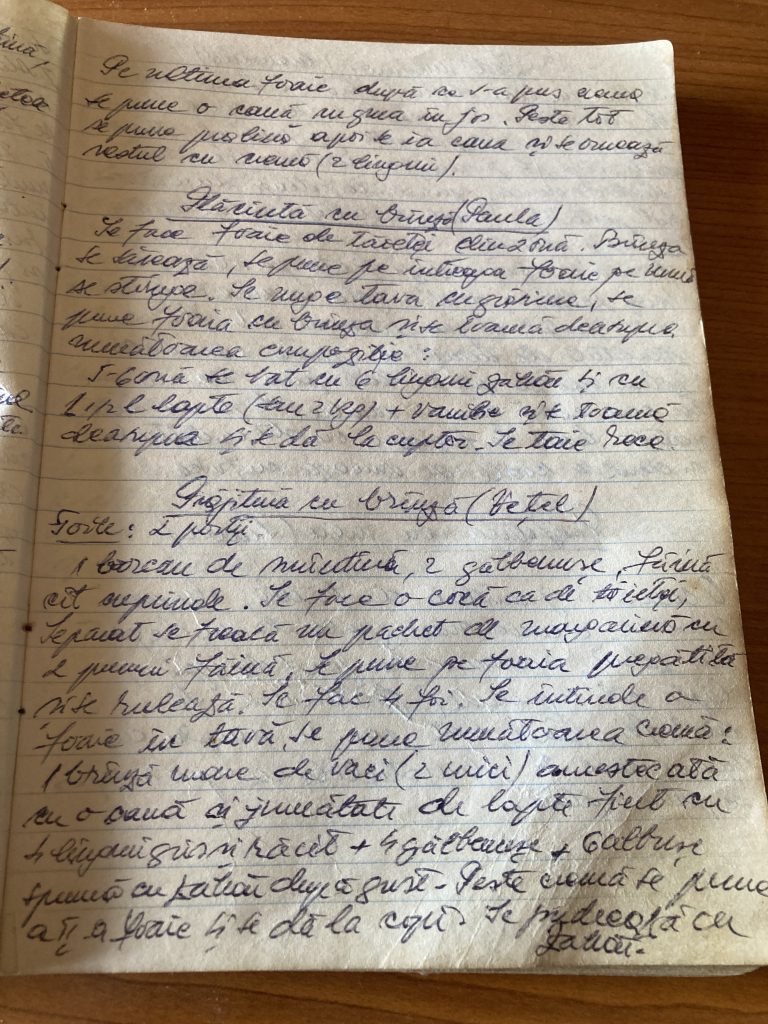 Pe ultima foaie după ce s-a pus crema
se pune o cană cu gura în jos. Peste tot
se pune pralină apoi se ia cana și se ornează
restul cu cremă (2 linguri).
Plăcintă cu brînză (Paula)
Se face foaie de tăieței din 2 ouă. Brînza
se sărează, se pune pe întreaga foaie pe
se strînge. Se unge tava cu grăsime, se
pune foaia cu brînza și se toarnă deasupra
următoarea compoziție:
5-6 ouă se bat cu 6 linguri zahăr și cu
lapte (sau 2 kg) + vanilie și se toarnă
deasupra și se dă la cuptor. Se taie rece.
Prăjitură cu brînză (Vețel)
Foile: 2 porții.
1 borcan de smîntînă, 2 gălbenușe, făină
cît cuprinde. Se face o cocă ca de tăieței,
Separat se freacă un pachet de margarină cu
2 pumni făină, se pune pe foaia pregătită
și se rulează. Se fac 4 foi. Se întinde o
foaie în tavă, se pune următoarea cremă:
1 brînză mare de vaci (2 mici) amestecată
cu o cană și jumătate de lapte fiert cu
4 linguri gris răcit + 4 gălbenușe + 6 albușe
spumă cu zahăr după gust. Peste cremă se pune
a II a foaie și se dă la copt. Se pudrează cu
zahăr.